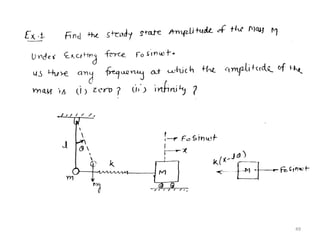 Ex.1 Find the steady state Amplitude of the Mass M
Under Exciting force F₀ sinωt.
us there any frequency at which the amplitude of the
mass is (i) zero? (ii) infinity?
F₀ sinωt
x
l
θ
k
M
m
mg
k(x-lθ)
M
F₀ sinωt